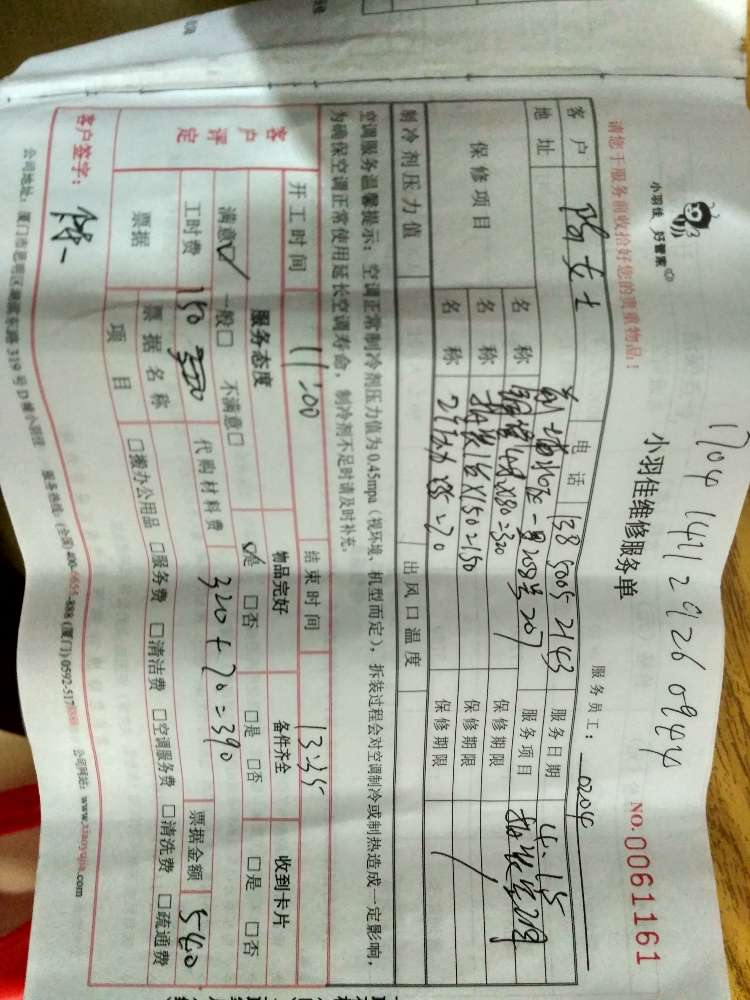 1704 1421 2926 0944
小羽佳 好管家
小羽佳维修服务单
NO.0061161
请您于服务前收拾好您的贵重物品！
服务员工： 0204
客户 陈女士 电话 138 5005 2143 服务日期 4.15
地址 服务项目
保修项目 名称 铜管4米X80=320 保修期限
名称 拆装1台X150=150 保修期限
名称 保修期限
制冷剂压力值 出风口温度
空调服务温馨提示：空调正常制冷剂压力值为0.45mpa（视环境、机型而定），拆装过程会对空调制冷或制热造成一定影响，
为确保空调正常使用延长空调寿命，制冷剂不足时请及时补充。
开工时间 11:00 结束时间 13:35
客户评定 服务态度 物品完好 备件齐全 收到卡片
满意☑ 一般□ 不满意□ ☑是 □否 □是 □否 □是 □否
工时费 150 代购材料费 320+70=390 票据金额 540
票据 票据名称 项目 □搬办公用品 □服务费 □清洁费 □空调服务费 □清洗费 □疏通费
客户签字： 陈一
公司地址：厦门市思明区 319号D幢小羽佳 服务热线：(全国)400- -888 (厦门)0592-517 公司网站：www.xiaoyujia.com